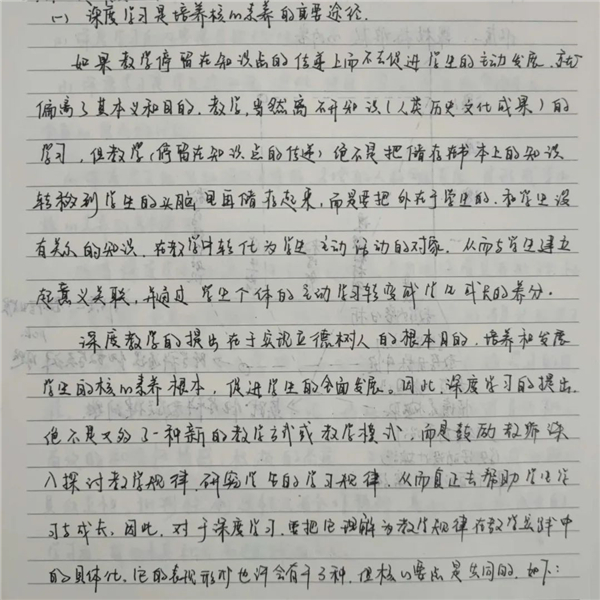 (一) 深度学习是培养核心素养的重要途径.
如果教学停留在知识点的传递上而不去促进学生的主动发展，就
偏离了其本义和目的. 教学, 当然离不开知识(人类历史文化成果)的
学习，但教学(停留在知识点的传递)绝不是把储存在书本上的知识
转移到学生的头脑里再储存起来，而是要把外在于学生的、和学生没
有关系的知识，在教学中转化为学生主动活动的对象，从而与学生建立
起意义关联，并通过学生个体的主动学习转变成学生成长的养分.
深度教学的提出在于实现立德树人的根本目的，培养和发展
学生的核心素养根本，促进学生的全面发展。因此，深度学习的提出，
绝不是又多了一种新的教学方式或教学模式，而是鼓励教师深
入探讨教学规律、研究学生的学习规律，从而真正去帮助学生学
习与成长，因此，对于深度学习，要把它理解为教学规律在教学实践中
的具体化，它的表现形形也许会有千万种，但核心要点是共同的，如下：